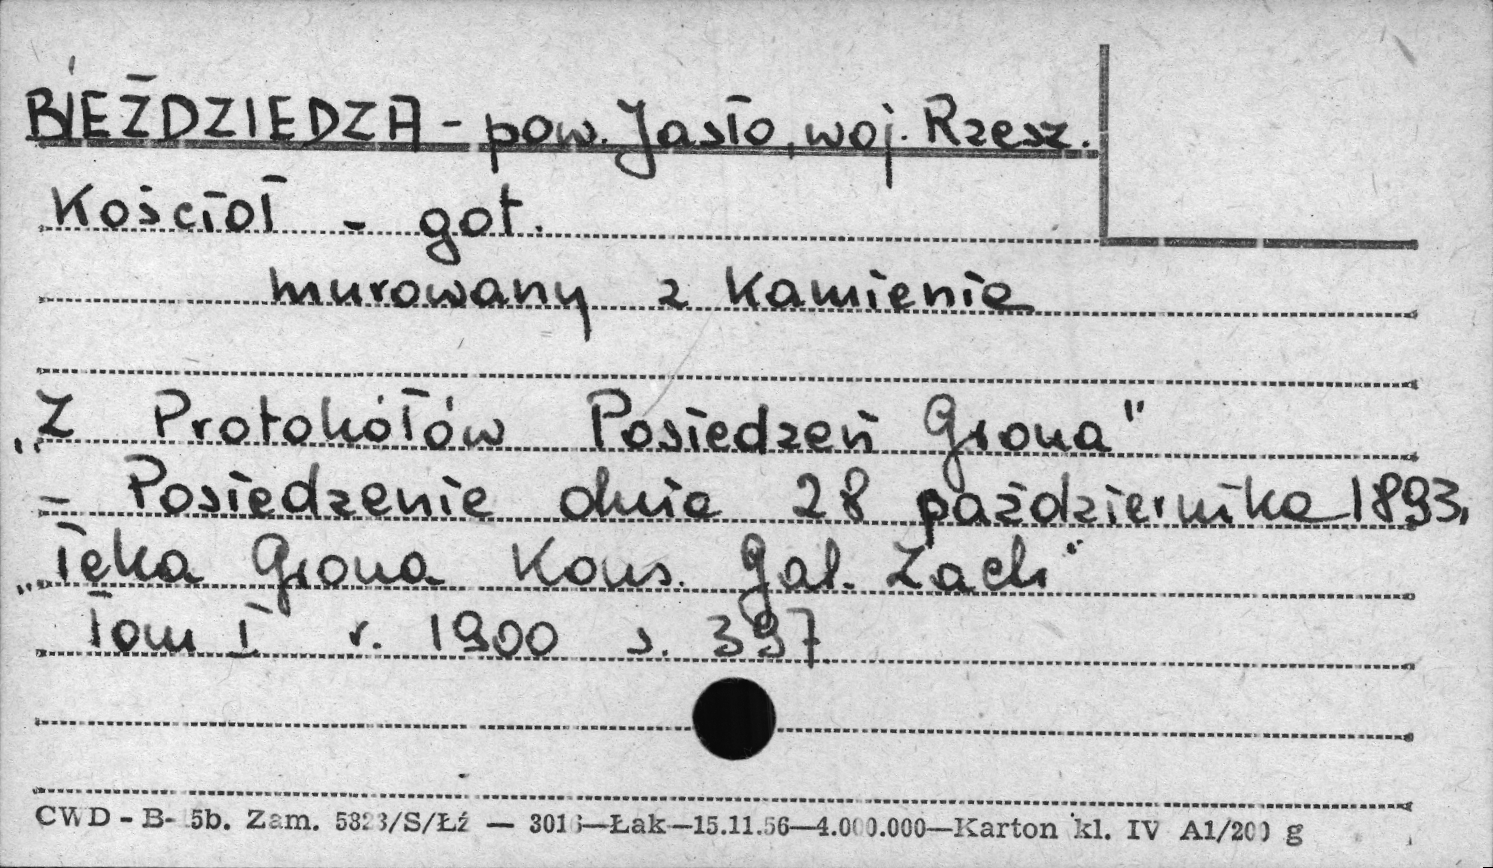 BIEŹDZIEDZA - pow. Jasło, woj. Rzesz.
Kościół - got.
murowany z kamienia
„Z Protokółów Posiedzeń Grona"
- Posiedzenie dnia 28 października 1893,
„Teka Grona Kons. Gal. Zach"
Tom I r. 1900 s. 397
CWD - B- 5b. Zam. /S/Łź — —Łak—15.11.56—4.000.000—Karton kl. IV A1/200 g